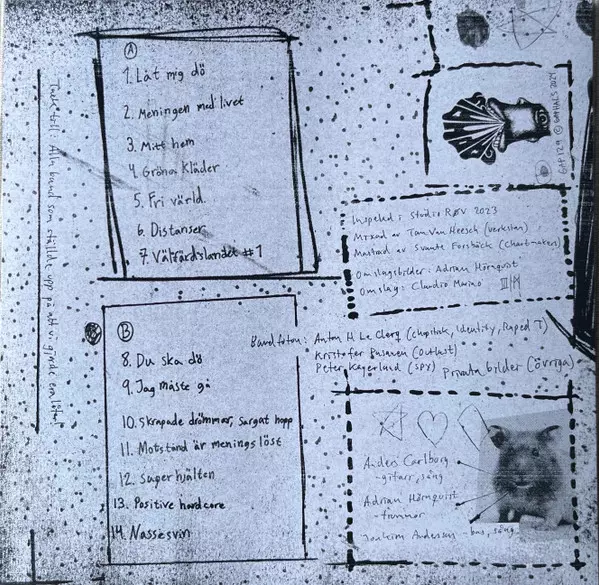 A
1. Låt mig dö
2. Meningen med livet
3. Mitt hem
4. Gröna Kläder
5. Fri värld.
6. Distanser
7. Välfärdslandet #1
B
8. Du ska dö
9. Jag måste gå
10. Skrapade drömmar, sargat hopp
11. Motstånd är menings löst
12. Superhjälten
13. Positive hardcore
14. Nassesvin
Tack till: Alla band som ställde upp på att vi gjorde era låtar
GTP129 © GPHALS 2024
Inspelad i Studio RØV 2023
Mixad av Tom Van Heesch (verkstan)
Mastrad av Svante Forsbäck (chartmakers)
Omslagsbilder: Adrian Hörnquist
Omslag: Claudio Marino
Bandfoton: Anton H Le Clerq (chopstick, Identity, Raped T)
Kristofer Pasanen (Outlast)
Peter Kagerland (SPY) Privata bilder (övriga)
Anders Carlborg
-gitarr, sång
Adrian Hörnquist
-trummor
Joakim Andersson - bas, sång